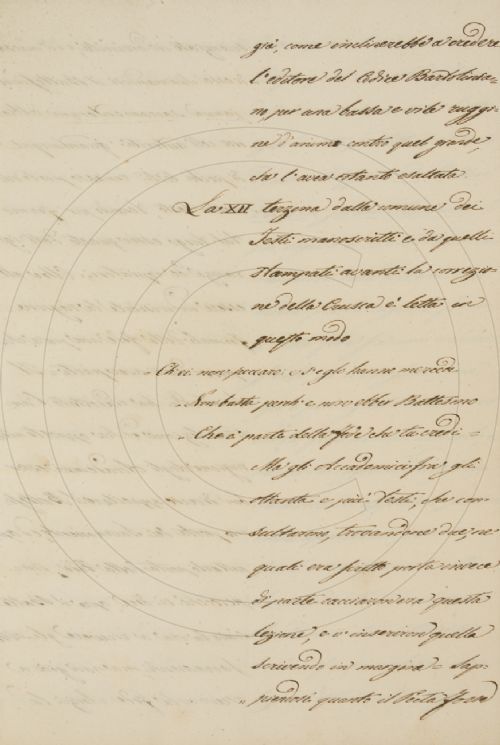 già, come inclinerebbe a credere
l'editore del Codice Bartolinia=
no, per una bassa e vile ruggi=
ne d'animo contro quel grande,
sì l'avea cotanto esaltata.
La XII terzena dalla comune dei
Testi manoscritti e da quelli
stampati avanti la correzio=
ne della Crusca è letta in
questo modo
Ch'ei non peccaro: e s'egli hanno mercedi
Non basta perch'e' non ebber Battesmo
Che è parte della fede che tu credi =
Ma gli Accademici fra gli
ottanta e più Testi, che con=
sultarono, trovandone due, ne'
quali era scritto porta invece
di parte cacciarono questa
lezione, e v'inserirono quella
scrivendo in margine = Sap=
piendosi quanto il Poeta fosse